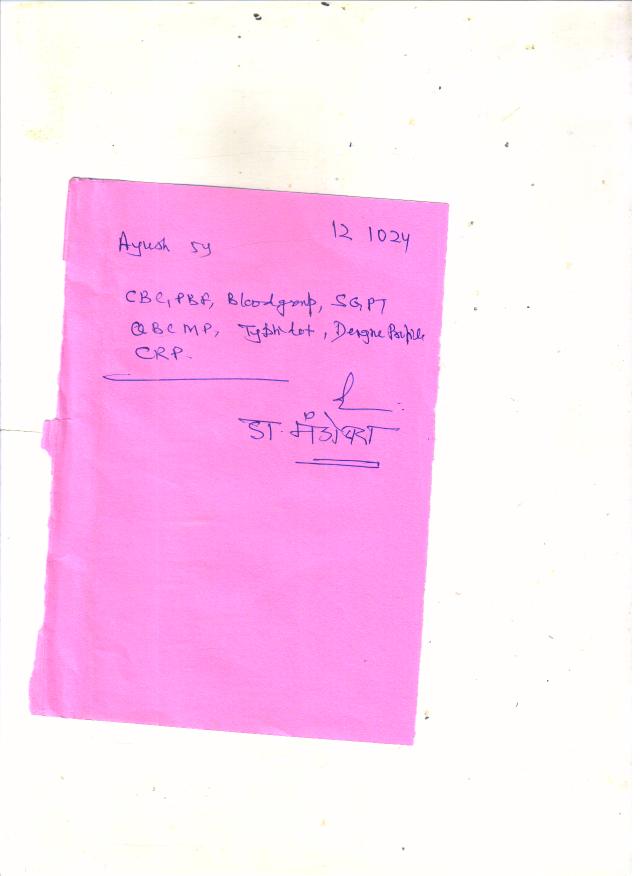 Ayush 5y 12 1024
CBC, PBF, Bloodgroup, SGPT
QBC MP, Typhidot, Dengue Profile
CRP.
डा. मंडोवरा